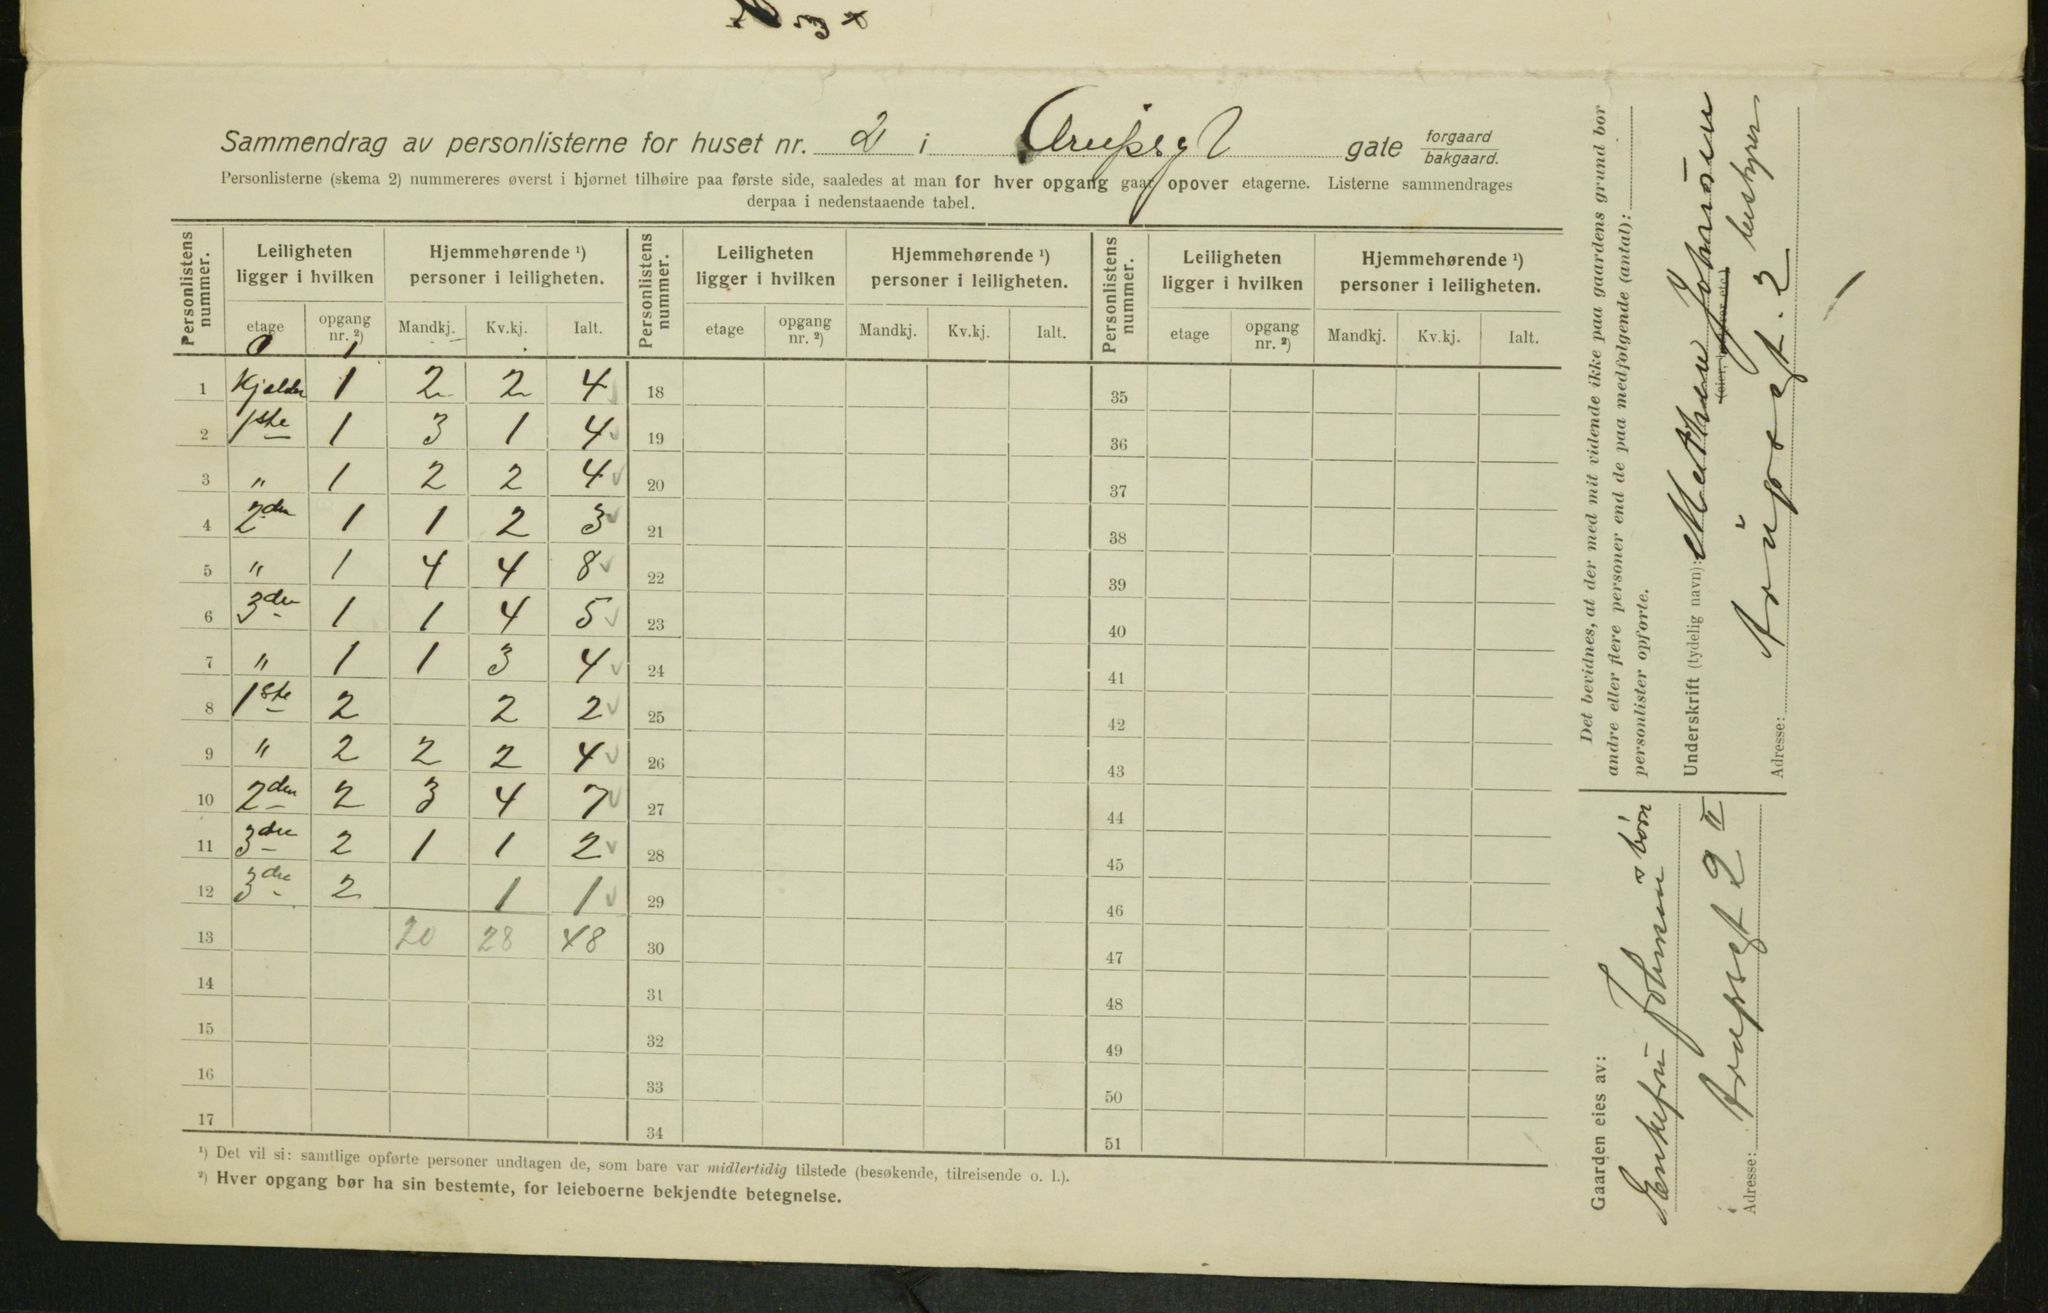 Sammendrag av personlisterne for huset nr. 2 i Arupsgt gate forgaard / bakgaard.
Personlisterne (skema 2) nummereres øverst i hjørnet tilhøire paa første side, saaledes at man for hver opgang gaar opover etagerne. Listerne sammendrages
derpaa i nedenstaaende tabel.
Personlistens nummer. Leiligheten ligger i hvilken Hjemmehørende ¹) personer i leiligheten. Personlistens nummer. Leiligheten ligger i hvilken Hjemmehørende ¹) personer i leiligheten. Personlistens nummer. Leiligheten ligger i hvilken Hjemmehørende ¹) personer i leiligheten.
etage opgang nr. ²) Mandkj. Kv.kj. Ialt. etage opgang nr. ²) Mandkj. Kv.kj. Ialt. etage opgang nr. ²) Mandkj. Kv.kj. Ialt.
0 1
1 Kjelder 1 2 2 4 18 35
2 1ste 1 3 1 4 19 36
3 " 1 2 2 4 20 37
4 2den 1 1 2 3 21 38
5 " 1 4 4 8 22 39
6 3den 1 1 4 5 23 40
7 " 1 1 3 4 24 41
8 1ste 2 2 2 25 42
9 " 2 2 2 4 26 43
10 2den 2 3 4 7 27 44
11 3die 2 1 1 2 28 45
12 3die 2 1 1 29 46
13 20 28 48 30 47
14 31 48
15 32 49
16 33 50
17 34 51
¹) Det vil si: samtlige opførte personer undtagen de, som bare var midlertidig tilstede (besøkende, tilreisende o. l.).
²) Hver opgang bør ha sin bestemte, for leieboerne bekjendte betegnelse.
Det bevidnes, at der med mit vidende ikke paa gaardens grund bor
andre eller flere personer end de paa medfølgende (antal):
personlister opførte.
Underskrift (tydelig navn): Mathea Johnsen
bestyrer
Adresse: Arupsgt. 2
Gaarden eies av:
Enkefru Johnsen's børn
Adresse: Arupsgt 2 II